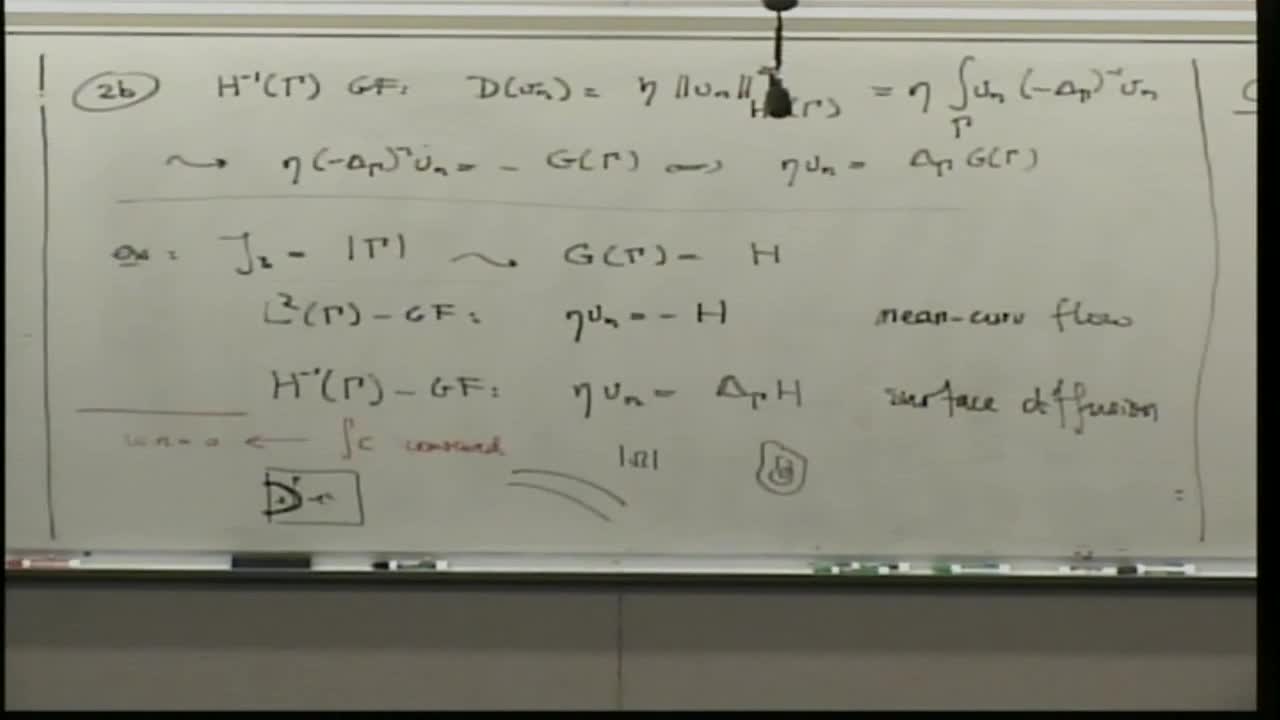 2b H⁻¹(Γ) GF: D(υₙ) = η ‖υₙ‖²_H⁻¹(Γ) = η ∫_Γ υₙ (-Δ_Γ)⁻¹ υₙ
⇝ η(-Δ_Γ)⁻¹ υₙ = - G(Γ) ⟺ ηυₙ = Δ_Γ G(Γ)
ex: J₂ = |Γ| ⇝ G(Γ) = H
L²(Γ) - GF: ηυₙ = - H mean-curv flow
H⁻¹(Γ) - GF: η υₙ = Δ_Γ H surface diffusion
n = 0 ← ∫c conserved |Ω|